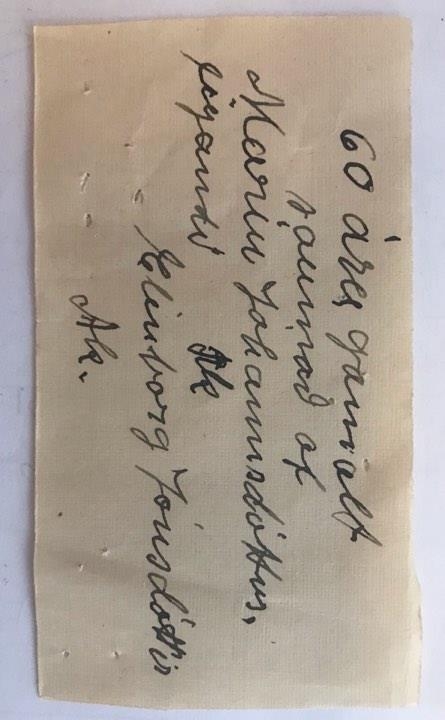 60 ára gamalt
saumað af
Maríu Jóhannsdóttur,
eigandi Ak
Elinborg Jónsdóttir
Ak.